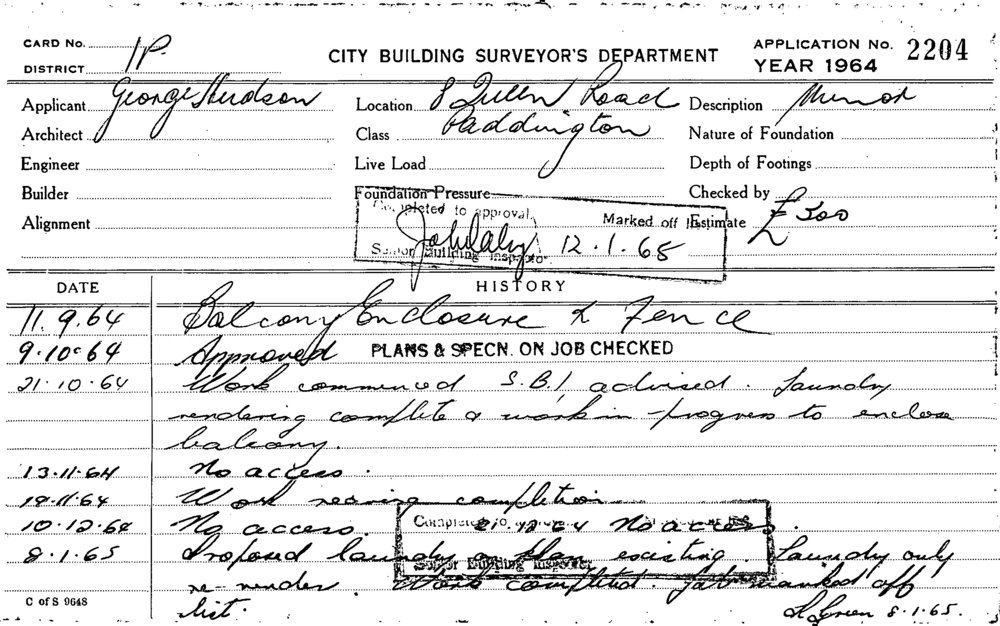 CARD No. 1P.
DISTRICT
CITY BUILDING SURVEYOR'S DEPARTMENT
APPLICATION No. 2204
YEAR 1964
Applicant George Hudson
Location 8 Queen Road
Description Minor
Architect
Class Paddington
Nature of Foundation
Engineer
Live Load
Depth of Footings
Builder
Foundation Pressure
Checked by
Alignment
Estimate £ 300
Completed to approval.
Marked off list
12.1.65
Senior Building Inspector
DATE
HISTORY
11.9.64 Balcony Enclosure & Fence
9.10.64 Approved PLANS & SPECN. ON JOB CHECKED
21.10.64 Work commenced S.B.I advised. Laundry
rendering complete & work in progress to enclose
balcony.
13.11.64 No access.
19.11.64 Work nearing completion
10.12.64 No access. No access.
8.1.65 Proposed laundry on plan existing. Laundry only
re-render. Work completed. Job marked off
list.
Green 8.1.65.
Senior Building Inspector
C of S 9648